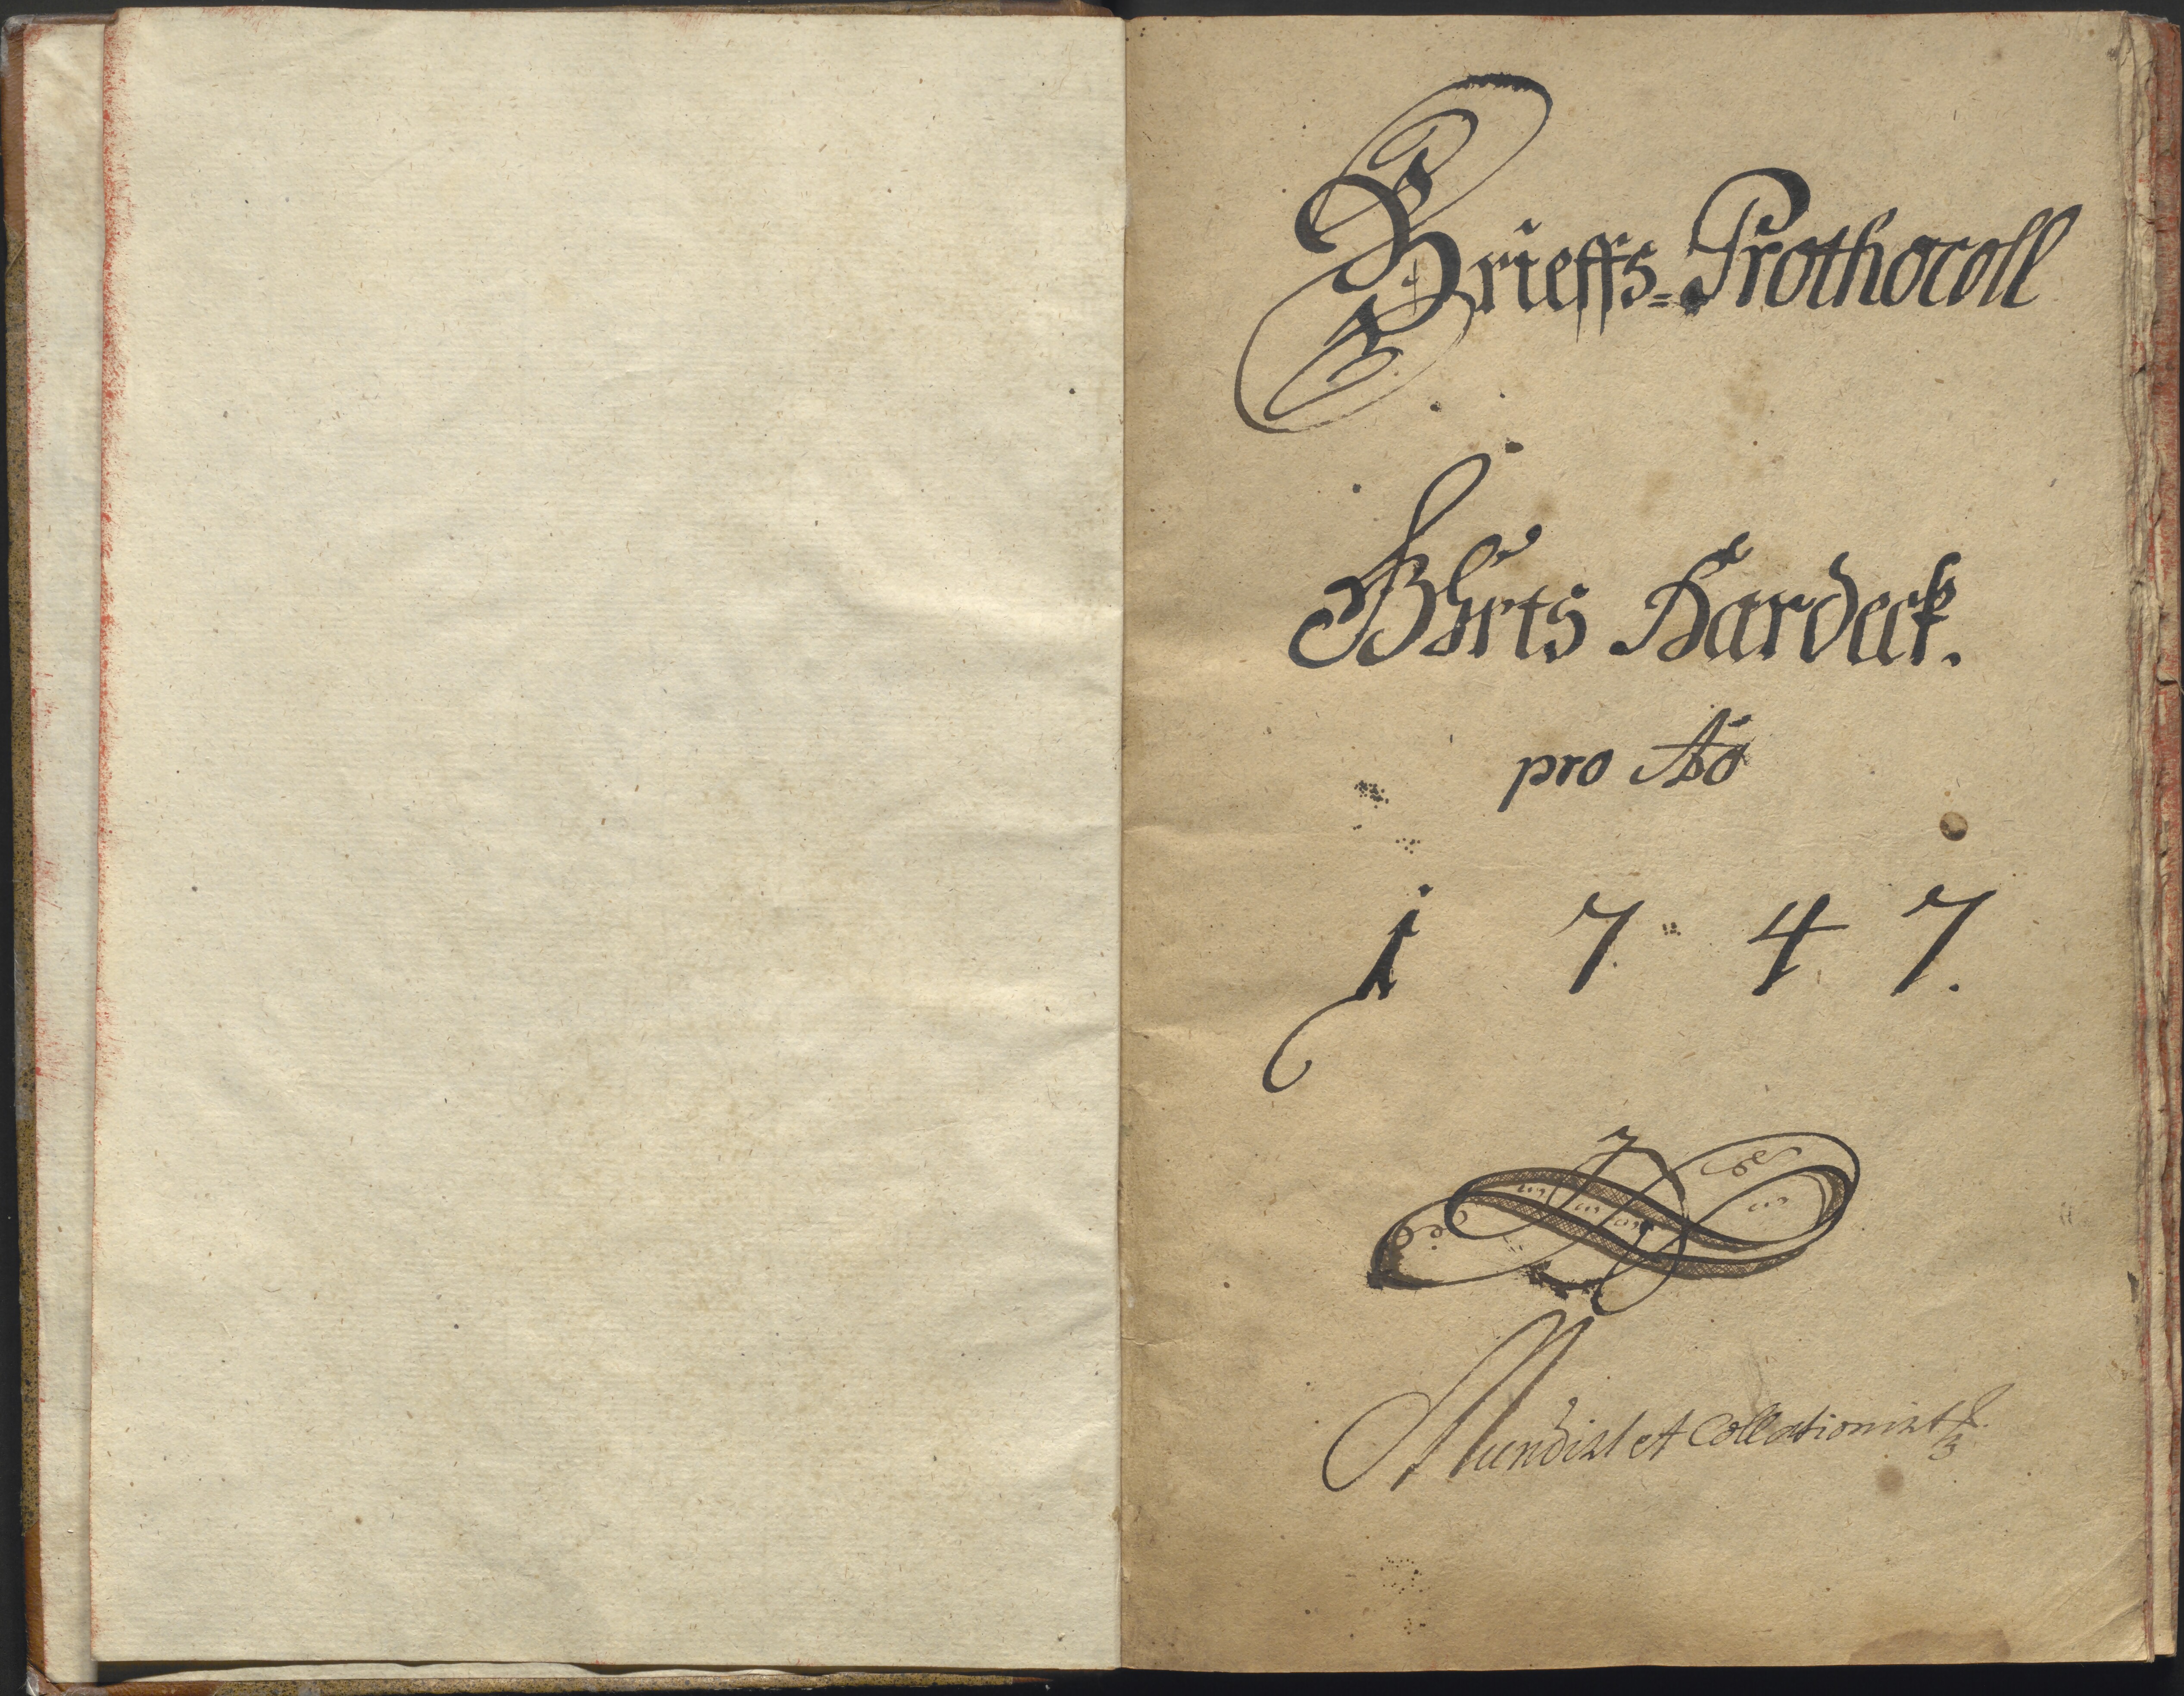 Brieffs=Prothocoll
Ghrts Hardeck.
pro Aō
1 7 4 7.
Mundirt et Collationirt